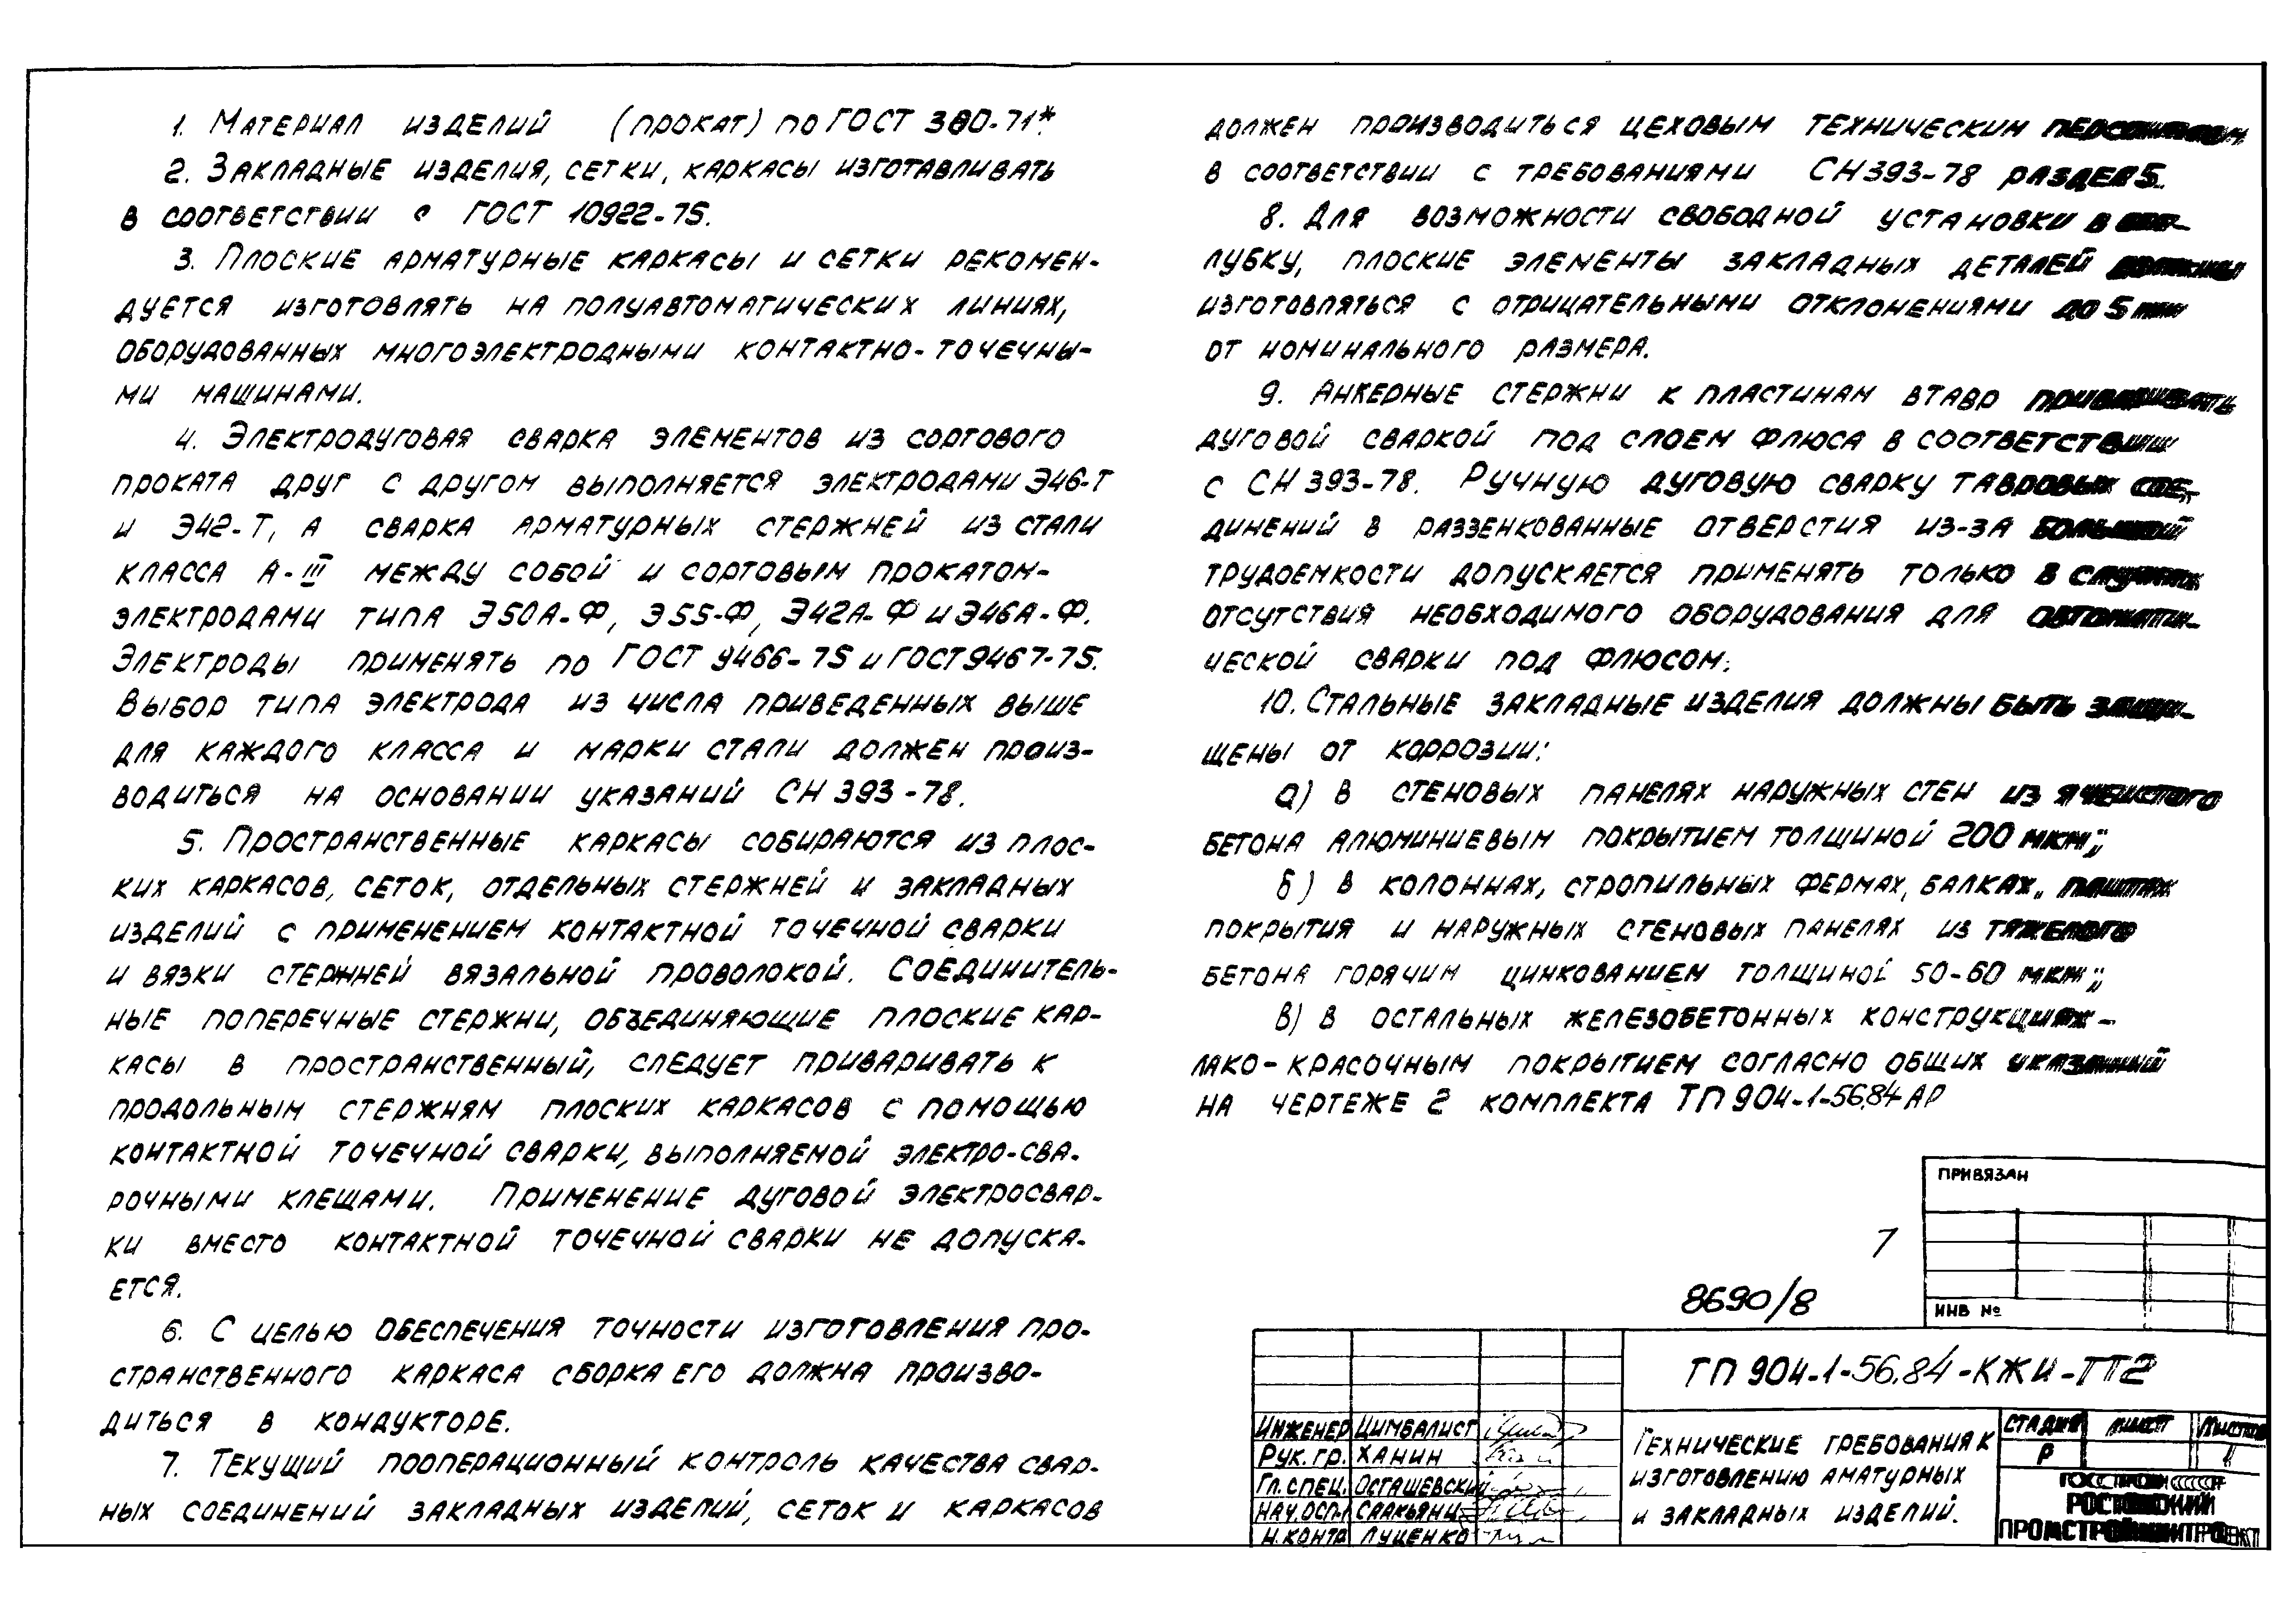 1. Материал изделий (прокат) по ГОСТ 380-71*.
2. Закладные изделия, сетки, каркасы изготавливать
в соответствии с ГОСТ 10922-75.
3. Плоские арматурные каркасы и сетки рекомен-
дуется изготовлять на полуавтоматических линиях,
оборудованных многоэлектродными контактно-точечны-
ми машинами.
4. Электродуговая сварка элементов из сортового
проката друг с другом выполняется электродами Э46-Т
и Э42-Т, а сварка арматурных стержней из стали
класса А-III между собой и сортовым прокатом-
электродами типа Э50А-Ф, Э55-Ф, Э42А-Ф и Э46А-Ф.
Электроды применять по ГОСТ 9466-75 и ГОСТ 9467-75.
Выбор типа электрода из числа приведенных выше
для каждого класса и марки стали должен произ-
водиться на основании указаний СН 393-78.
5. Пространственные каркасы собираются из плос-
ких каркасов, сеток, отдельных стержней и закладных
изделий с применением контактной точечной сварки
и вязки стержней вязальной проволокой. Соединитель-
ные поперечные стержни, объединяющие плоские кар-
касы в пространственный, следует приваривать к
продольным стержням плоских каркасов с помощью
контактной точечной сварки, выполняемой электро-сва-
рочными клещами. Применение дуговой электросвар-
ки вместо контактной точечной сварки не допуска-
ется.
6. С целью обеспечения точности изготовления про-
странственного каркаса сборка его должна произво-
диться в кондукторе.
7. Текущий пооперационный контроль качества свар-
ных соединений закладных изделий, сеток и каркасов
должен производиться цеховым техническим персоналом
в соответствии с требованиями СН 393-78 раздел 5.
8. Для возможности свободной установки в опа-
лубку, плоские элементы закладных деталей должны
изготовляться с отрицательными отклонениями до 5 мм
от номинального размера.
9. Анкерные стержни к пластинам втавр приваривать
дуговой сваркой под слоем флюса в соответствии
с СН 393-78. Ручную дуговую сварку тавровых сое-
динений в раззенкованные отверстия из-за большой
трудоемкости допускается применять только в случаях
отсутствия необходимого оборудования для автомати-
ческой сварки под флюсом.
10. Стальные закладные изделия должны быть защи-
щены от коррозии:
а) в стеновых панелях наружных стен из ячеистого
бетона алюминиевым покрытием толщиной 200 мкм;
б) в колоннах, стропильных фермах, балках, плитах
покрытия и наружных стеновых панелях из тяжелого
бетона горячим цинкованием толщиной 50-60 мкм;
в) в остальных железобетонных конструкциях-
лако-красочным покрытием согласно общих указаний
на чертеже 2 комплекта ТП 904-1-56.84 АР
Привязан
7
8690/8
Инв №
ТП 904-1-56.84-КЖИ-ТТ2
Инженер Цимбалист
Рук. гр. Ханин
Гл. спец. Осташевский
Нач. осп-1 Саакьянц
Н. контр Луценко
Технические требования к
изготовлению аматурных
и закладных изделий.
Стадия Лист Листов
Р 1
Госстрой СССР
Ростовский
Промстройниипроект